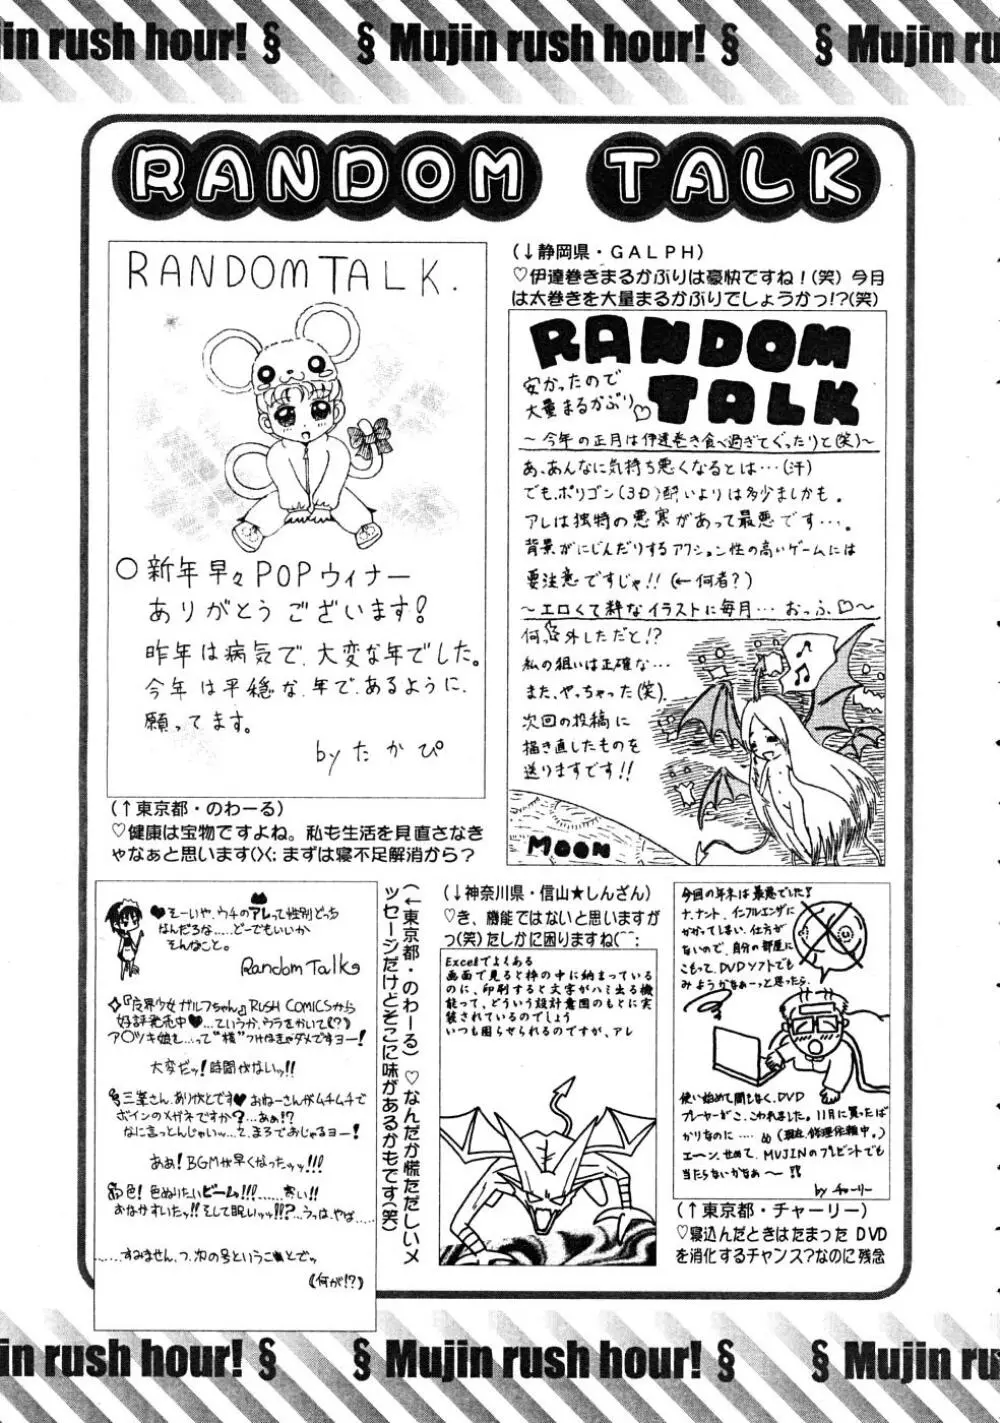 jin rush hour! §
§ Mujin rush hour! §
§ Mujin ru
RANDOM TALK
RANDOM TALK.
○新年早々POPウィナー
ありがとうございます!
昨年は病気で、大変な年でした。
今年は平穏な年で、あるように、
願ってます。
by たかぴ
(↑東京都・のわーる)
♡健康は宝物ですよね。私も生活を見直さなき
ゃなぁと思います(〉〈; まずは寝不足解消から?
(↓静岡県・GALPH)
♡伊達巻きまるかぶりは豪快ですね!(笑) 今月
は太巻きを大量まるかぶりでしょうかっ!?(笑)
RANDOM
TALK
安かったので
大量まるかぶり♡
~今年の正月は伊達巻き食べ過ぎてぐったりと(笑)~
あ、あんなに気持ち悪くなるとは…(汗)
でも、ポリゴン(3D)酔いよりは多少ましかも。
アレは独特の悪寒があって最悪です…。
背景がにじんだりするアクション性の高いゲームには
要注意ですじゃ!! (←何者?)
~エロくて粋なイラストに毎月… おっふ♡~
何、外しただと!?
私の狙いは正確な…
また、やっちゃった(笑)
次回の投稿に
描き直したものを
送りますです!!
MOON
♥そーいや、ウチのアレって性別どっち
なんだろな……どーでもいいか
そんなこと。
Random Talk
RUSH COMICSから
好評発売中♥…ていうか、ウラをかいて(?)
大変だッ! 時間がないっ!!
三峯さん、ありがとです♥ おねーさんがムチムチで
ボインのメガネですか?…あぁ!?
なに言っとんじゃいッ…て、まろでおじゃるヨー!
ああ! BGMが早くなったッッ!!!
色ぬりたいビームッ!!!……寒い!!
おなかすいたッ!! そして眠いッッ!!?…うっは、やば……
……すみません、っ、次の号ということでッ
(何が!?)
(←東京都・のわーる) ♡なんだか慌ただしいメ
ッセージだけどそこに味があるかもです(笑)
(↓神奈川県・信山★しんざん)
♡き、機能ではないと思いますが
っ(笑)たしかに困りますね(⌒⌒;
Excelでよくある
画面で見ると枠の中に納まっている
のに、印刷すると文字がハミ出る機
能って、どういう設計意図のもとに実
装されているのでしょう
いつも困らせられるのですが、アレ
今回の年末は最悪でした!
ナ、ナント、インフルエンザに
かかってしまい、仕方が
ないので、自分の部屋に
こもって、DVDソフトでも
みようかなぁーっと思ったら、
使い始めて間もなく、DVD
プレーヤーがこ、こわれました。11月に買ったば
かりなのに…… (現在、修理依頼中。)
エーン、せめて、MUJINのプレゼントでも
当たらないかなぁ～ !!
by チャーリー
(↑東京都・チャーリー)
♡寝込んだときはたまったDVD
を消化するチャンス?なのに残念
in rush hour! §
§ Mujin rush hour! §
§ Mujin rus